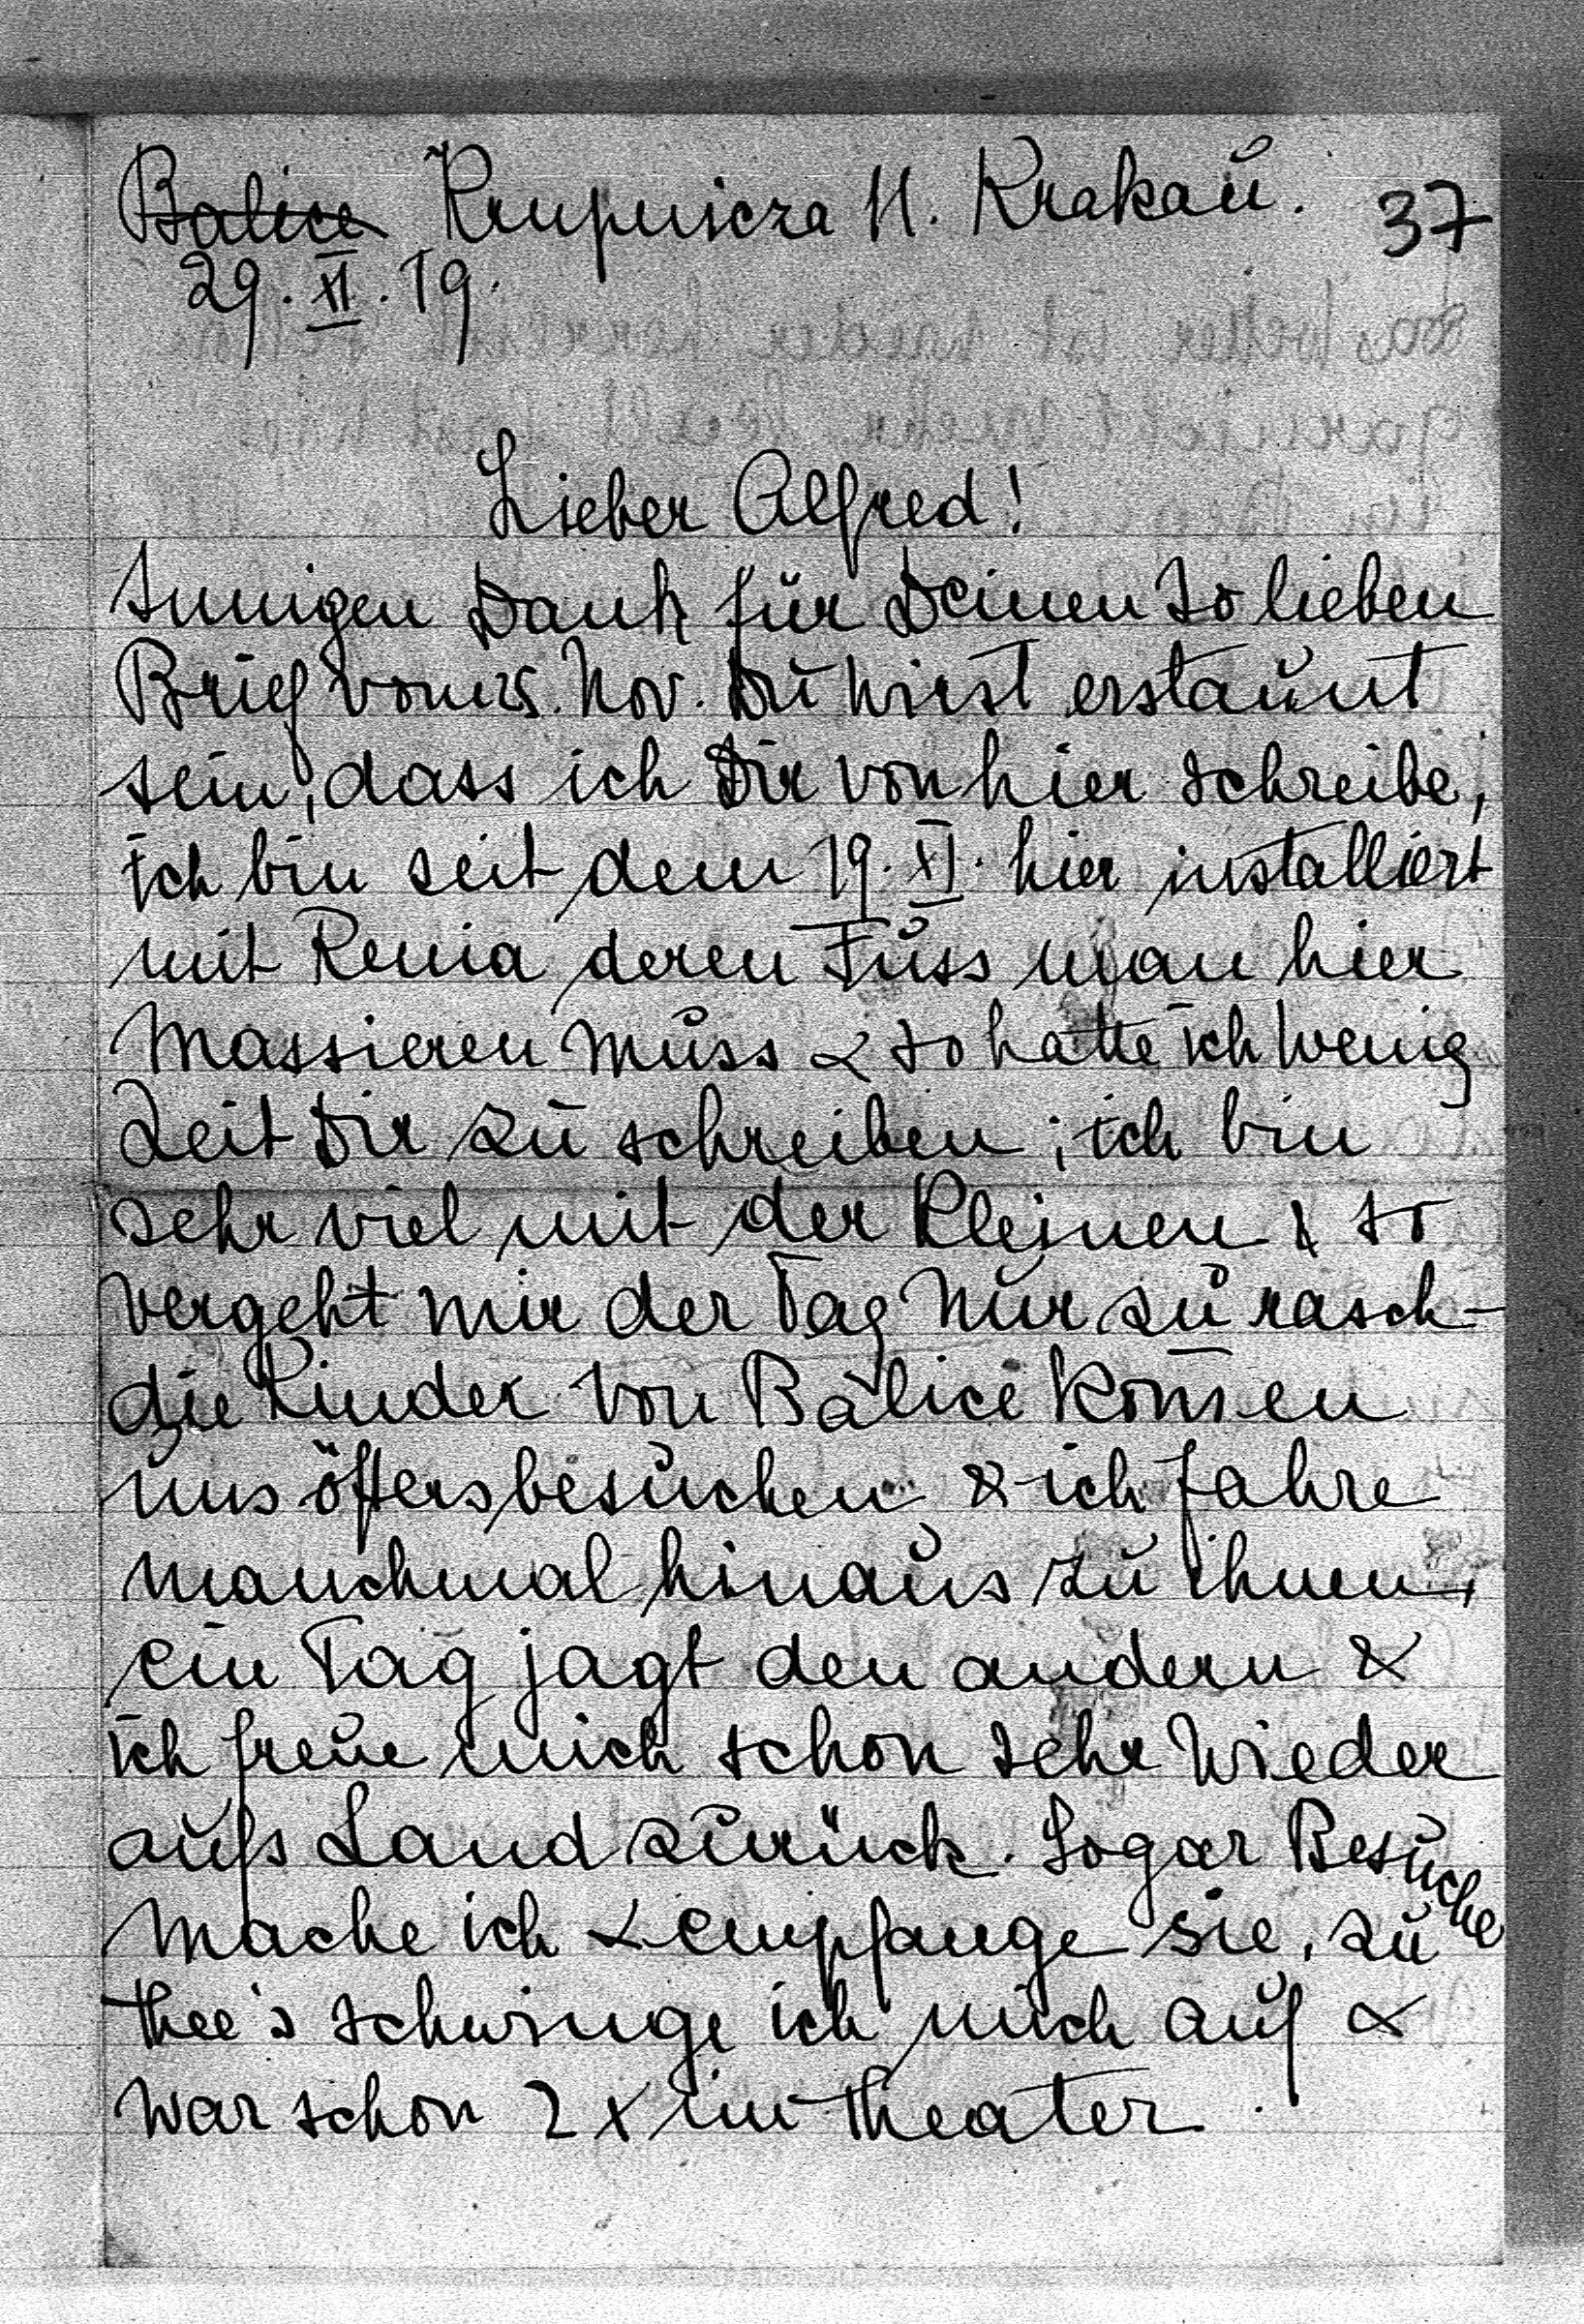 ~~Balice~~ Krupnicza 11. Krakau. 37
29. XI. 19.
Lieber Alfred!
Innigen Dank für Deinen so lieben
Brief vom 25. Nov. Du wirst erstaunt
sein, dass ich Dir von hier schreibe,
ich bin seit dem 19. XI. hier installiert
mit Renia deren Fuss man hier
massieren muss & so hatte ich wenig
Zeit Dir zu schreiben; ich bin
sehr viel mit der Kleinen & so
vergeht mir der Tag nur zu rasch –
die Kinder von Balice kom̄en
uns öfters besuchen & ich fahre
manchmal hinaus zu ihnen,
ein Tag jagt den andern &
ich freue mich schon sehr wieder
aufs Land zurück. Sogar Besuche
mache ich & empfange sie, zu
thee's schwinge ich mich auf &
war schon 2 x im Theater.